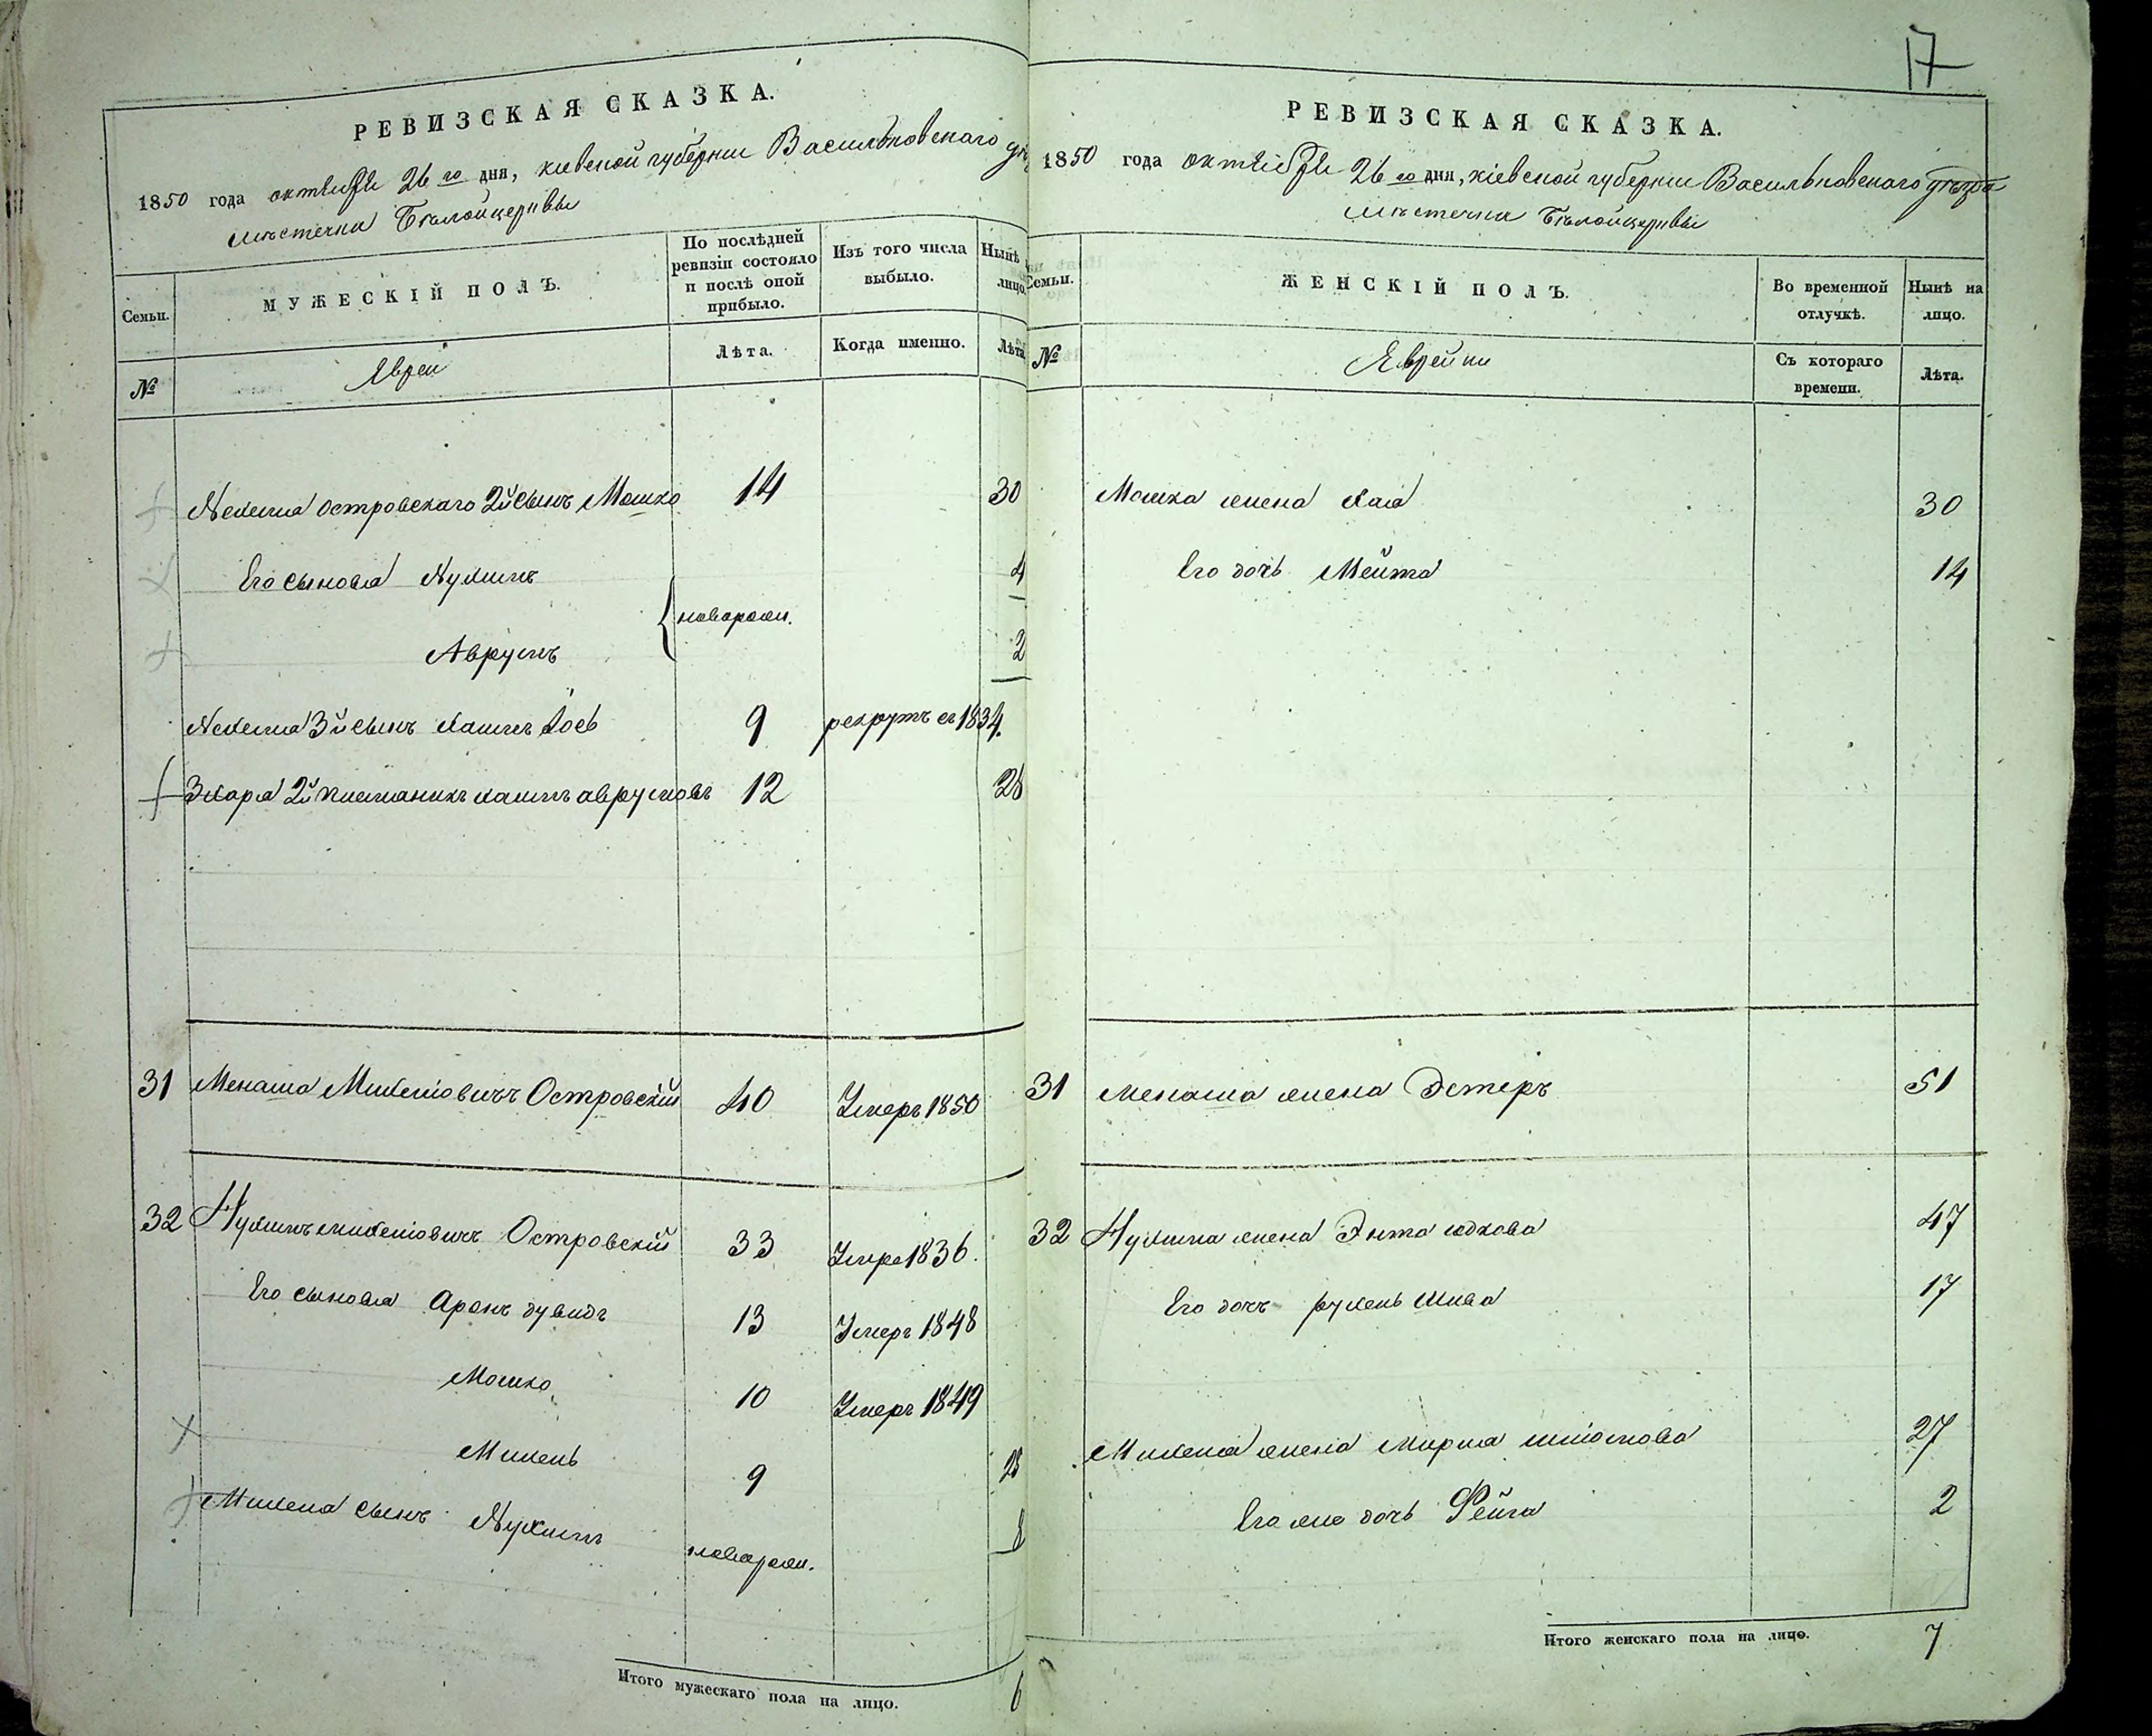 РЕВИЗСКАЯ СКАЗКА.
1850 года октября 26 го дня, кіевской губерніи Васильковскаго
мѣстечка Бѣлойцеркви
Семьи.
МУЖЕСКІЙ ПОЛЪ.
По послѣдней ревизіи состояло и послѣ оной прибыло.
Изъ того числа выбыло.
Нынѣ лицо.
№
Евреи
Лѣта.
Когда именно.
Лѣта
островскаго 2й сынъ Мошко 14 30
Его сыновья Нухимъ 4
новорожд.
Аврумъ 2
3й сынъ 9 рекрутъ въ 1834.
2й племяникъ хаимъ аврумовъ 12 28
31 Менаша Михелiовичъ Островскій 40 Умеръ 1850
32 Нухимъ михелiовичъ Островскій 33 Умеръ 1836.
Его сыновья Аронъ дувидъ 13 Умеръ 1848
Мошко 10 Умеръ 1849
Михель 9 25
Михеля сынъ Нухимъ новорожд.
Итого мужескаго пола на лицо. 6
17
РЕВИЗСКАЯ СКАЗКА.
1850 года октября 26 го дня, кіевской губерніи Васильковскаго уѣзда
мѣстечка Бѣлойцеркви
Семьи.
ЖЕНСКІЙ ПОЛЪ.
Во временной отлучкѣ.
Нынѣ на лицо.
№
Еврейки
Съ котораго времени.
Лѣта.
Мошка жена Хая 30
Его дочь Мейта 14
31 Менаша жена Эстеръ 51
32 Нухима жена Энта юдкова 47
Его дочь рухель 17
Михеля жена Мирля 27
Его же дочь Фейга 2
Итого женскаго пола на лицо. 7